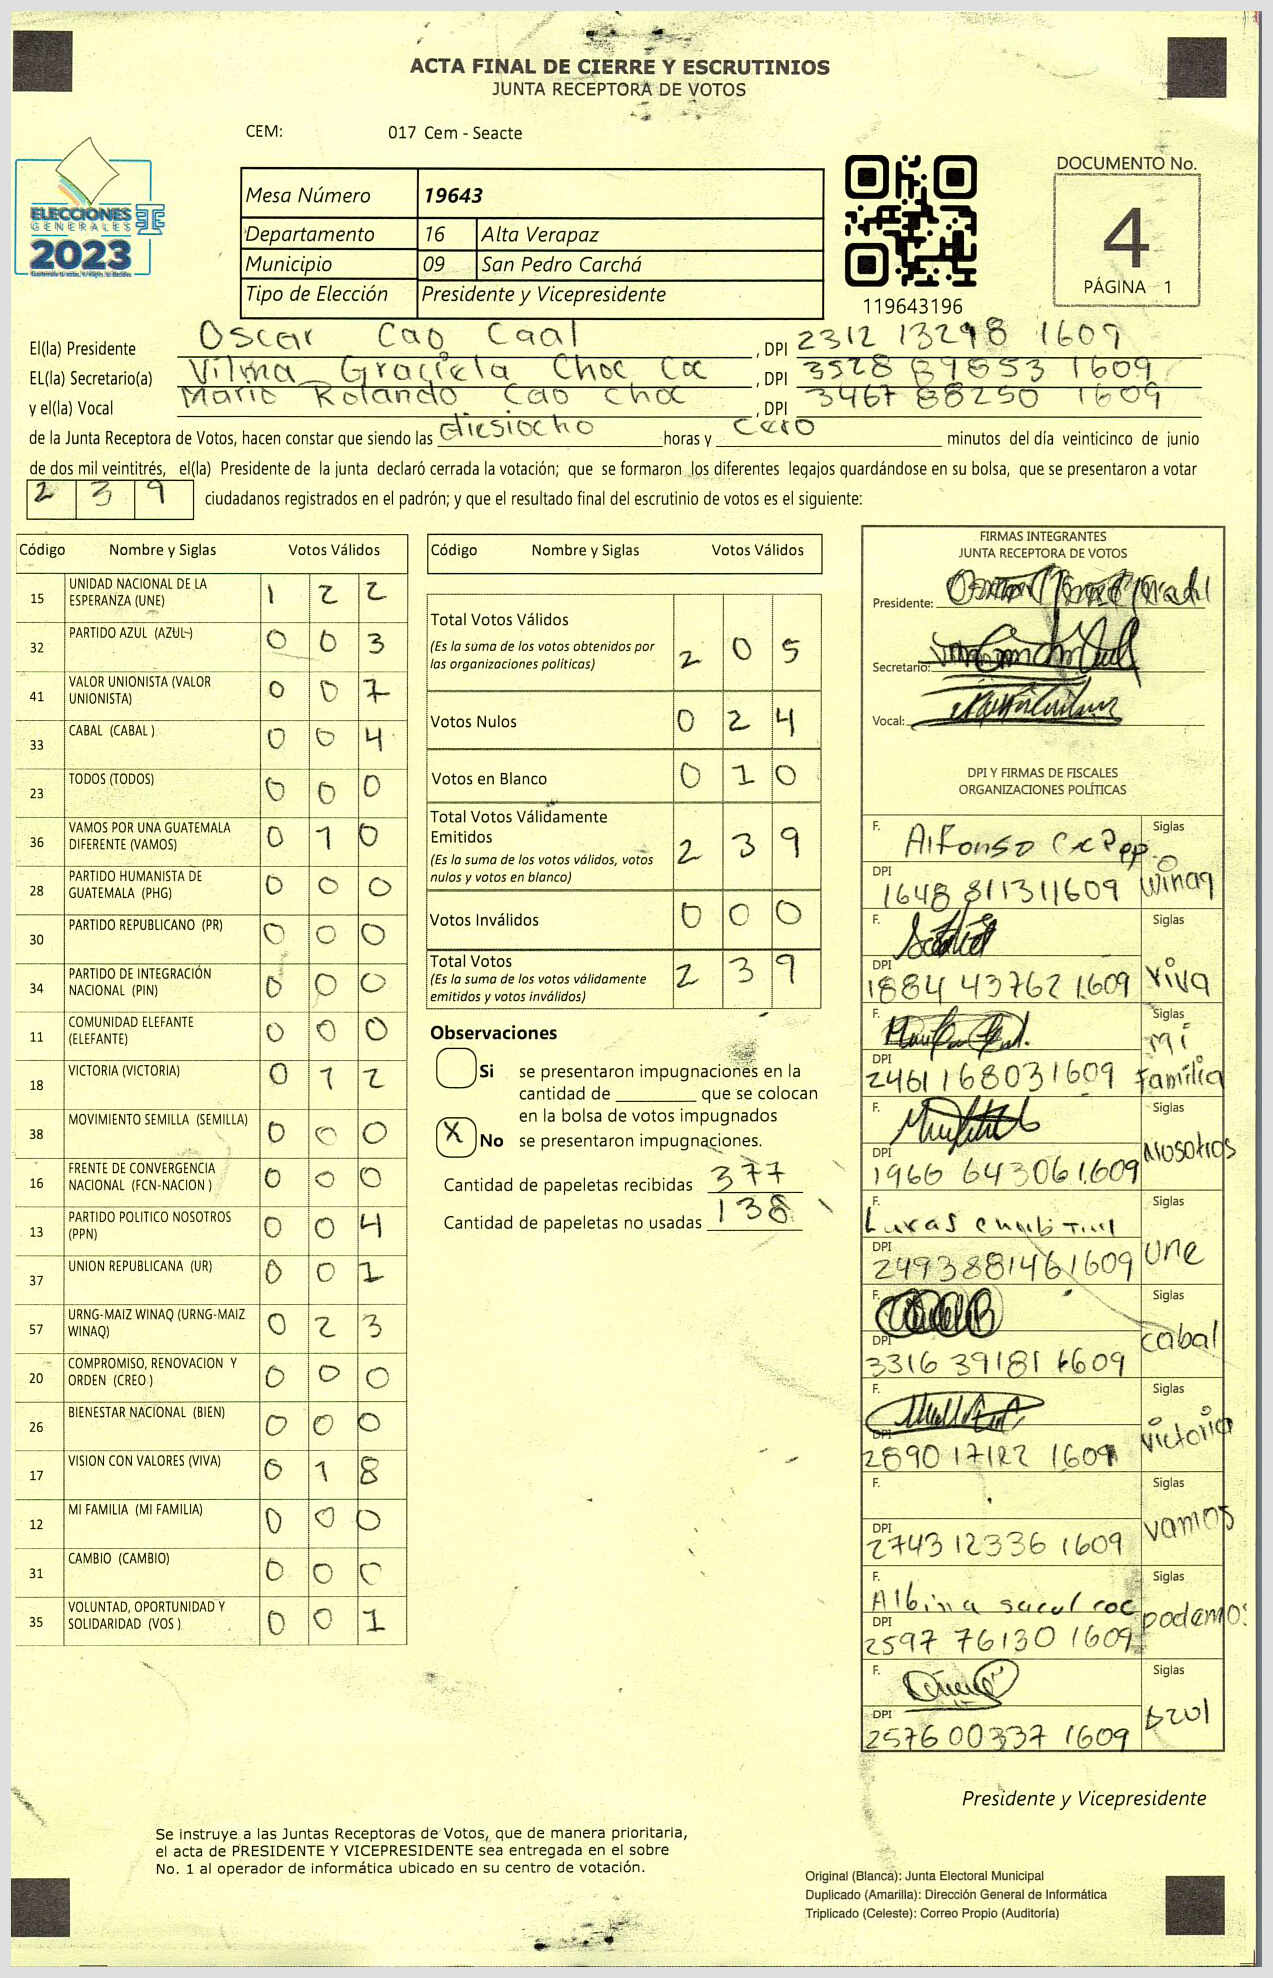 ACTA FINAL DE CIERRE Y ESCRUTINIOS
JUNTA RECEPTORA DE VOTOS
CEM: 017 Cem - Seacte
ELECCIONES
GENERALES
2023
Mesa Número 19643
Departamento 16 Alta Verapaz
Municipio 09 San Pedro Carchá
Tipo de Elección Presidente y Vicepresidente
119643196
DOCUMENTO No.
4
PÁGINA 1
El(la) Presidente Oscar Cao Caal, DPI 2312 13298 1609
EL(la) Secretario(a) Vilma Graciela Choc Coc, DPI 3528 89853 1609
y el(la) Vocal Mario Rolando Cao Choc, DPI 3467 88250 1609
de la Junta Receptora de Votos, hacen constar que siendo las diesiocho horas y cero minutos del día veinticinco de junio
de dos mil veintitrés, el(la) Presidente de la junta declaró cerrada la votación; que se formaron los diferentes legajos guardándose en su bolsa, que se presentaron a votar
2 3 9 ciudadanos registrados en el padrón; y que el resultado final del escrutinio de votos es el siguiente:
Código Nombre y Siglas Votos Válidos
15 UNIDAD NACIONAL DE LA ESPERANZA (UNE) 1 2 2
32 PARTIDO AZUL (AZUL) 0 0 3
41 VALOR UNIONISTA (VALOR UNIONISTA) 0 0 7
33 CABAL (CABAL ) 0 0 4
23 TODOS (TODOS) 0 0 0
36 VAMOS POR UNA GUATEMALA DIFERENTE (VAMOS) 0 1 0
28 PARTIDO HUMANISTA DE GUATEMALA (PHG) 0 0 0
30 PARTIDO REPUBLICANO (PR) 0 0 0
34 PARTIDO DE INTEGRACIÓN NACIONAL (PIN) 0 0 0
11 COMUNIDAD ELEFANTE (ELEFANTE) 0 0 0
18 VICTORIA (VICTORIA) 0 1 2
38 MOVIMIENTO SEMILLA (SEMILLA) 0 0 0
16 FRENTE DE CONVERGENCIA NACIONAL (FCN-NACION ) 0 0 0
13 PARTIDO POLITICO NOSOTROS (PPN) 0 0 4
37 UNION REPUBLICANA (UR) 0 0 1
57 URNG-MAIZ WINAQ (URNG-MAIZ WINAQ) 0 2 3
20 COMPROMISO, RENOVACION Y ORDEN (CREO ) 0 0 0
26 BIENESTAR NACIONAL (BIEN) 0 0 0
17 VISION CON VALORES (VIVA) 0 1 8
12 MI FAMILIA (MI FAMILIA) 0 0 0
31 CAMBIO (CAMBIO) 0 0 0
35 VOLUNTAD, OPORTUNIDAD Y SOLIDARIDAD (VOS ) 0 0 1
Código Nombre y Siglas Votos Válidos
Total Votos Válidos
(Es la suma de los votos obtenidos por
las organizaciones politicas) 2 0 5
Votos Nulos 0 2 4
Votos en Blanco 0 1 0
Total Votos Válidamente
Emitidos
(Es la suma de los votos válidos, votos
nulos y votos en blanco) 2 3 9
Votos Inválidos 0 0 0
Total Votos
(Es la suma de los votos válidamente
emitidos y votos inválidos) 2 3 9
Observaciones
Si se presentaron impugnaciones en la
cantidad de ________ que se colocan
en la bolsa de votos impugnados
X No se presentaron impugnaciones.
Cantidad de papeletas recibidas 377
Cantidad de papeletas no usadas 138
FIRMAS INTEGRANTES
JUNTA RECEPTORA DE VOTOS
Presidente:
Secretario:
Vocal:
DPI Y FIRMAS DE FISCALES
ORGANIZACIONES POLÍTICAS
F. Alfonso Siglas
DPI 1648 81131 1609 winaq
F. Siglas
DPI 1884 43762 1609 Viva
F. Siglas
DPI 2461 16803 1609 mi familia
F. Siglas
DPI 1966 64306 1609 Nosotros
F. Lucas Siglas
DPI 2493 88146 1609 une
F. Siglas
DPI 3316 39181 1609 cabal
F. Siglas
DPI 2890 17122 1609 victoria
F. Siglas
DPI 2743 12336 1609 vamos
F. Albina sacul coc Siglas
DPI 2597 76130 1609 podemos
F. Siglas
DPI 2576 00337 1609 Azul
Presidente y Vicepresidente
Se instruye a las Juntas Receptoras de Votos, que de manera prioritaria,
el acta de PRESIDENTE Y VICEPRESIDENTE sea entregada en el sobre
No. 1 al operador de informática ubicado en su centro de votación.
Original (Blanca): Junta Electoral Municipal
Duplicado (Amarilla): Dirección General de Informática
Triplicado (Celeste): Correo Propio (Auditoría)